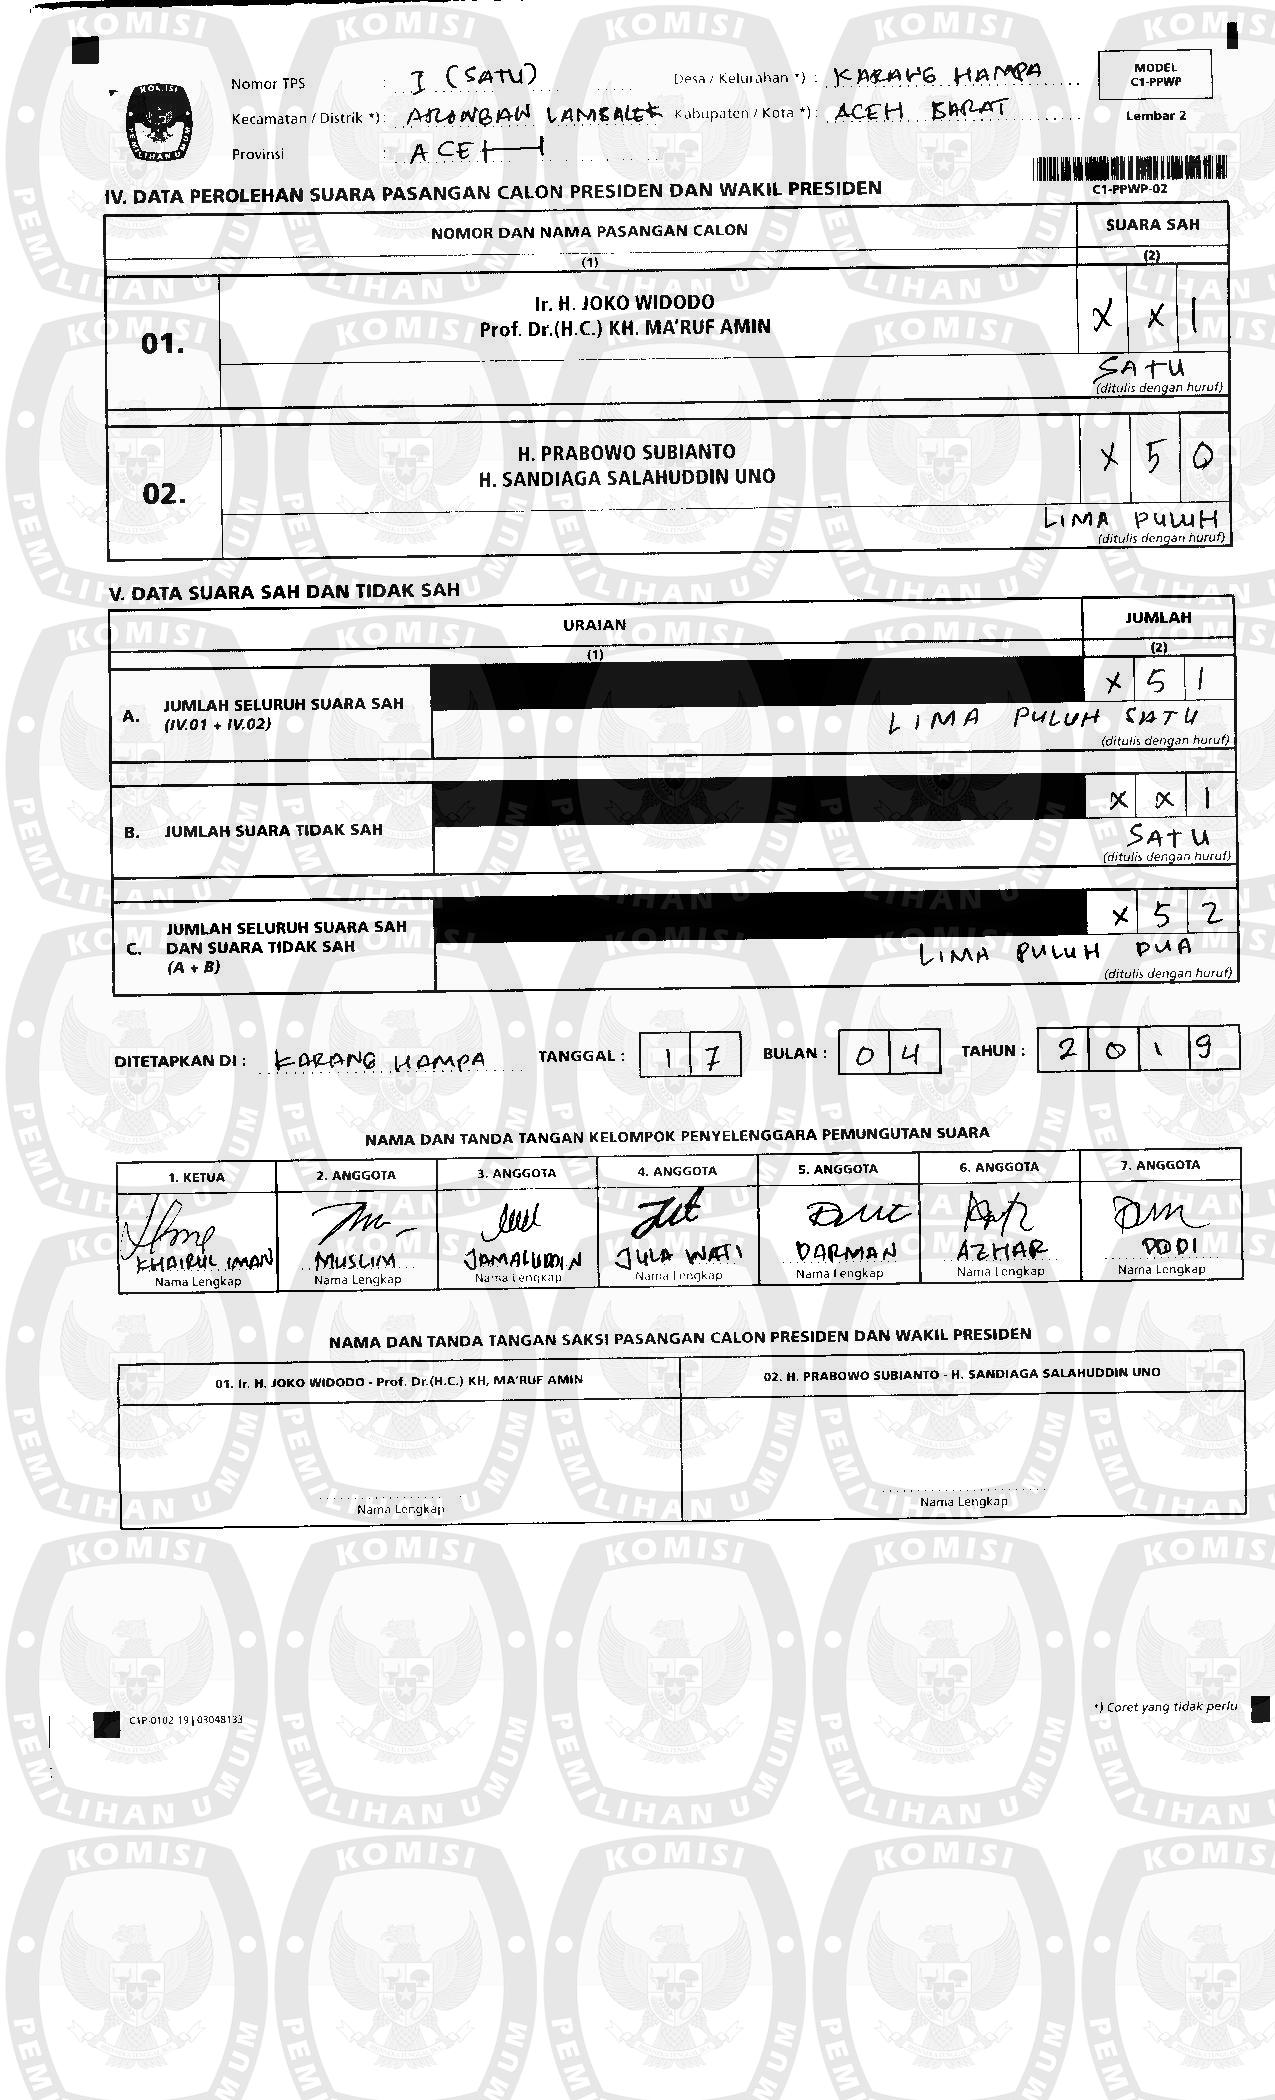 Nomor TPS : I (SATU)
Desa / Kelurahan *) : KARANG HAMPA
MODEL
C1-PPWP
Kecamatan / Distrik *) : ARONGBAN LAMBALEK
Kabupaten / Kota *) : ACEH BARAT
Lembar 2
Provinsi : ACEH
C1-PPWP-02
IV. DATA PEROLEHAN SUARA PASANGAN CALON PRESIDEN DAN WAKIL PRESIDEN
NOMOR DAN NAMA PASANGAN CALON
SUARA SAH
(1)
(2)
01.
Ir. H. JOKO WIDODO
Prof. Dr.(H.C.) KH. MA'RUF AMIN
X X 1
SATU
(ditulis dengan huruf)
02.
H. PRABOWO SUBIANTO
H. SANDIAGA SALAHUDDIN UNO
X 5 0
LIMA PULUH
(ditulis dengan huruf)
V. DATA SUARA SAH DAN TIDAK SAH
URAIAN
JUMLAH
(1)
(2)
A. JUMLAH SELURUH SUARA SAH
(IV.01 + IV.02)
X 5 1
LIMA PULUH SATU
(ditulis dengan huruf)
B. JUMLAH SUARA TIDAK SAH
X X 1
SATU
(ditulis dengan huruf)
C. JUMLAH SELURUH SUARA SAH
DAN SUARA TIDAK SAH
(A + B)
X 5 2
LIMA PULUH DUA
(ditulis dengan huruf)
DITETAPKAN DI : KARANG HAMPA TANGGAL : 17 BULAN : 04 TAHUN : 2019
NAMA DAN TANDA TANGAN KELOMPOK PENYELENGGARA PEMUNGUTAN SUARA
1. KETUA 2. ANGGOTA 3. ANGGOTA 4. ANGGOTA 5. ANGGOTA 6. ANGGOTA 7. ANGGOTA
KHAIRUL IMAN MUSLIM JAMALUDDIN JULA WATI DARMAN AZHAR DODI
Nama Lengkap Nama Lengkap Nama Lengkap Nama Lengkap Nama Lengkap Nama Lengkap Nama Lengkap
NAMA DAN TANDA TANGAN SAKSI PASANGAN CALON PRESIDEN DAN WAKIL PRESIDEN
01. Ir. H. JOKO WIDODO - Prof. Dr.(H.C.) KH. MA'RUF AMIN
02. H. PRABOWO SUBIANTO - H. SANDIAGA SALAHUDDIN UNO
Nama Lengkap
Nama Lengkap
C1P-0102-19 | 03048133
*) Coret yang tidak perlu